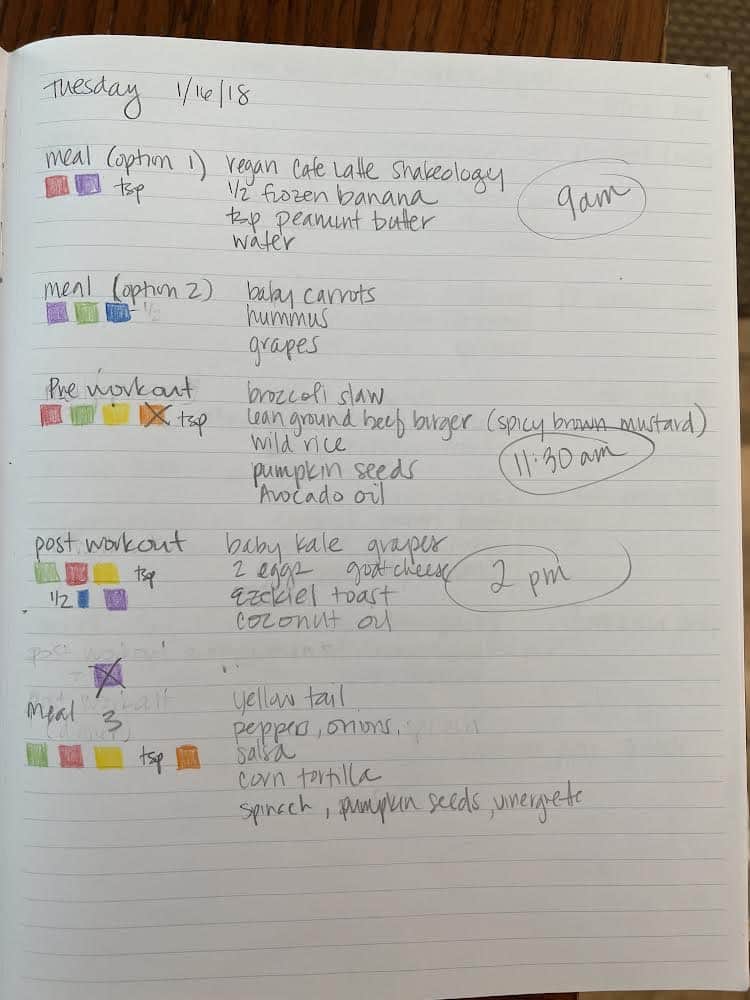 Tuesday 1/16/18
meal (option 1) vegan Cafe Latte Shakeology
tsp 1/2 frozen banana
tsp peanut butter
water
9am
meal (option 2) baby carrots
1/2 hummus
grapes
Pre workout broccoli slaw
tsp lean ground beef burger (spicy brown mustard)
wild rice
11:30 am
pumpkin seeds
Avocado oil
post workout baby kale grapes
tsp 2 eggs goat cheese
2 pm
1/2 Ezekiel toast
coconut oil
post workout
yellow tail
meal 3 peppers, onions,
tsp salsa
corn tortilla
spinach, pumpkin seeds, vinergrete